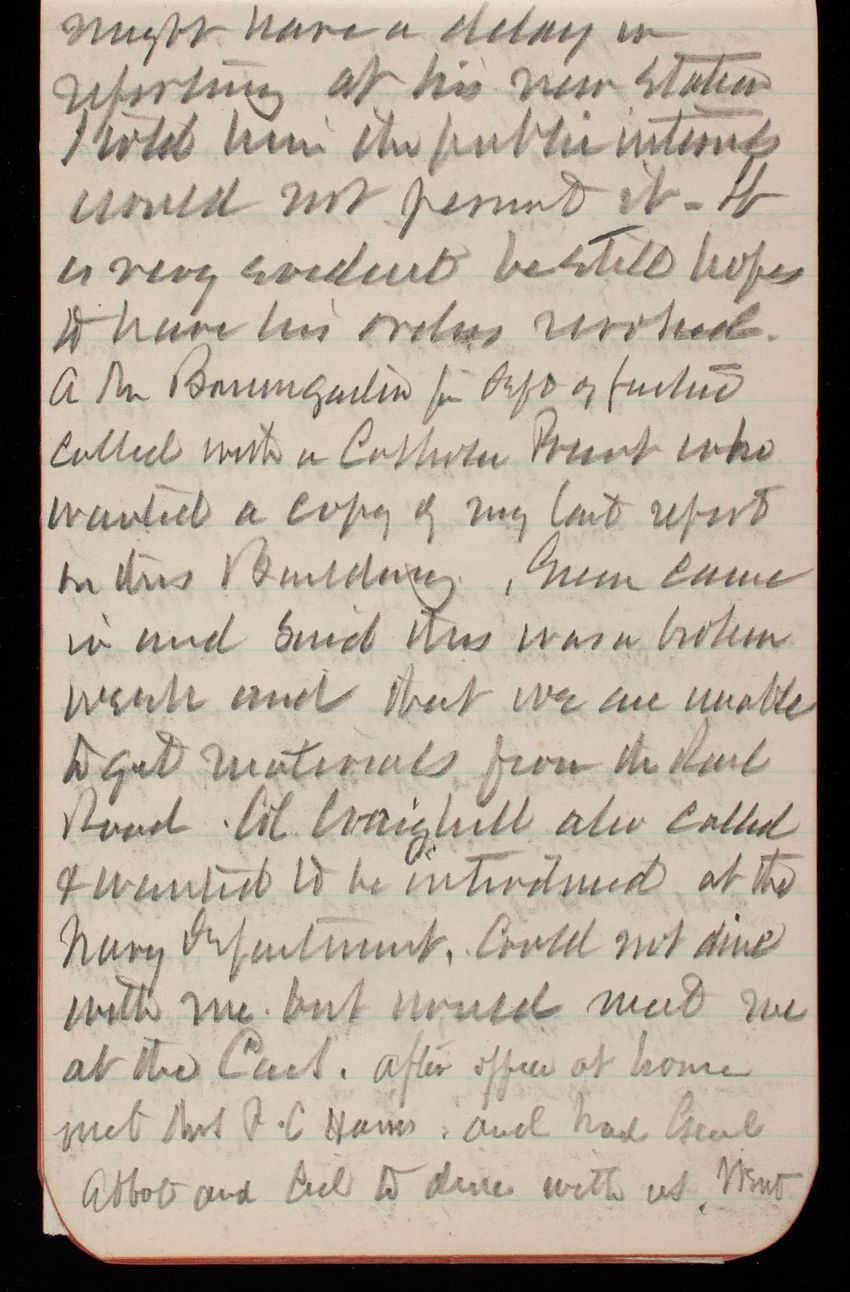 might have a delay in
reporting at his new station
I told him the public interests
would not permit it - It
is very evident he still hopes
to have his orders revoked.
A Mr Baumgarten for Dept of Justice
called with a Catholic Priest who
wanted a copy of my last report
on this Building. Green came
in and said this was a broken
week and that we are unable
to get materials from the Rail
Road. Col Craighill also called
& wanted to be introduced at the
Navy Department. Could not dine
with me but would meet me
at the Club. After office at home
met Mrs P. C Hains. and had Genl
Abbot and to dine with us. Went